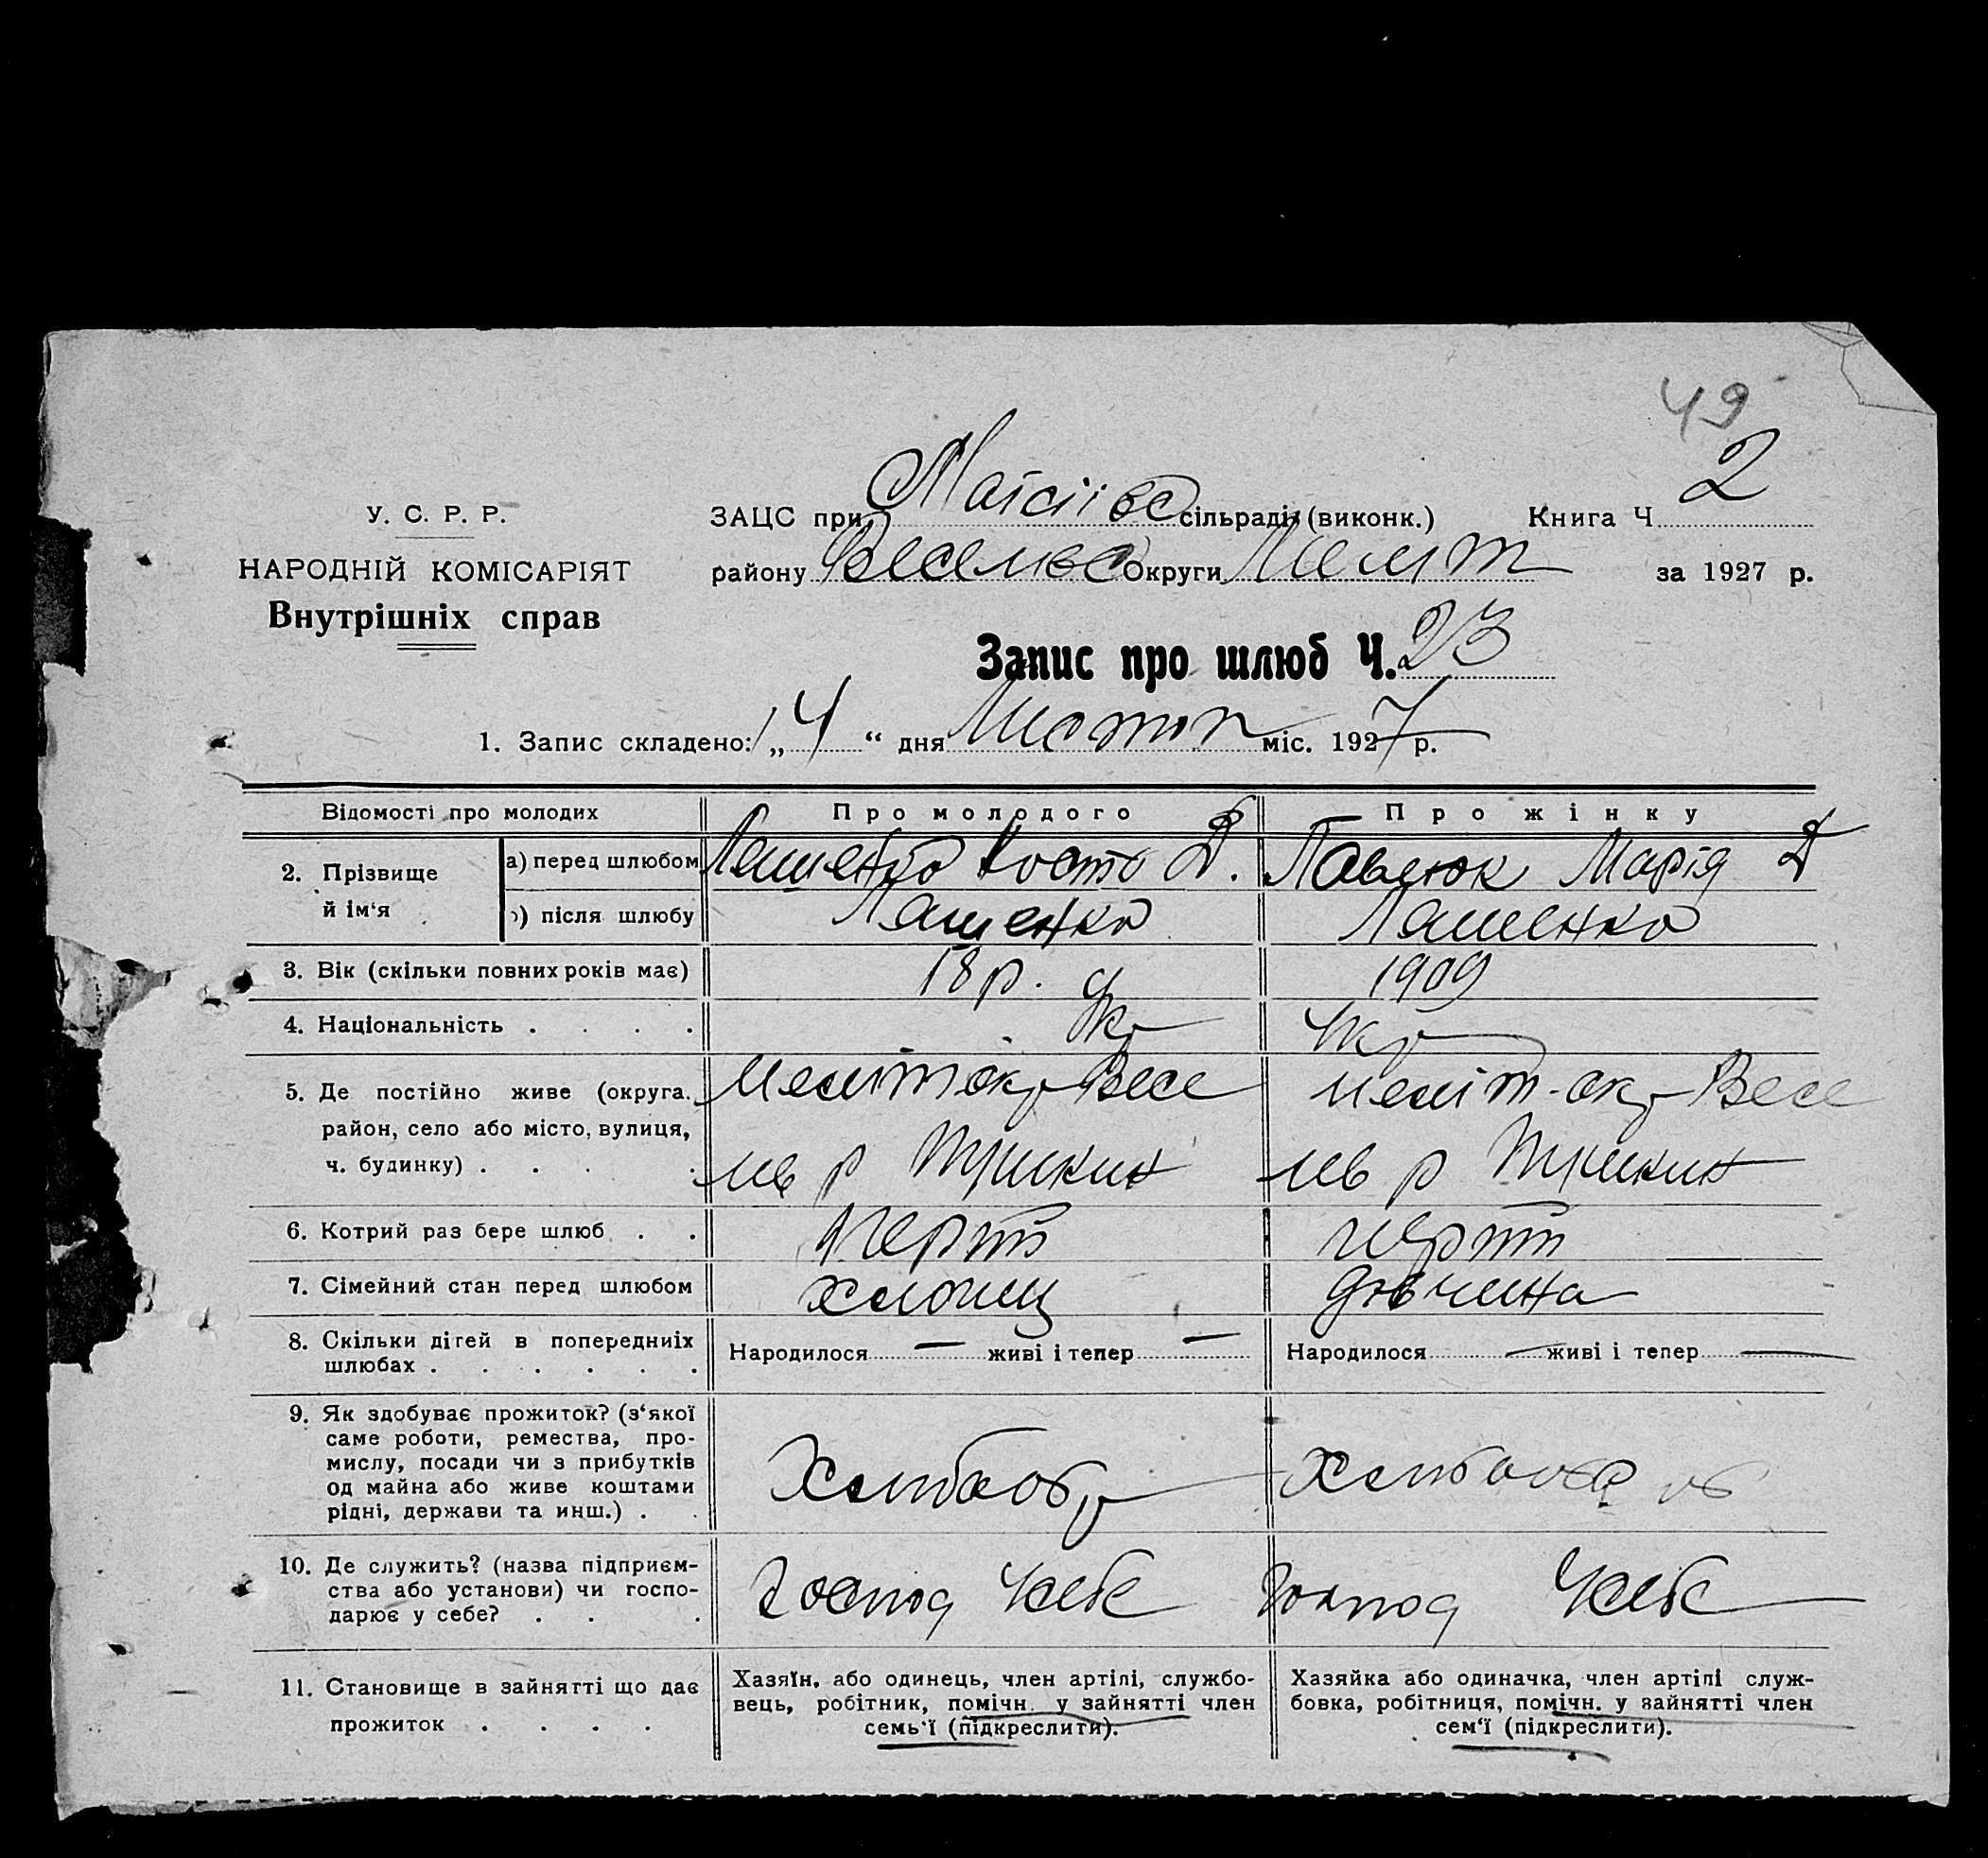 49
У. С. Р. Р.
НАРОДНІЙ КОМІСАРІЯТ
Внутрішніх справ
ЗАЦС при сільраді (виконк.) Книга Ч 2
району Веселовс округи Меліт за 1927 р.
Запис про шлюб Ч. 23
1. Запис складено: „ 4 “ дня Листоп міс. 1927 р.
Відомості про молодих Про молодого Про жінку
2. Прізвище й ім‘я а) перед шлюбом Лашенко Кость Д. Павлюк Марія Д
) після шлюбу Лашенко Лашенко
3. Вік (скільки повних років має) 18 р. 1909
4. Національність . . . . Укр Укр
5. Де постійно живе (округа. Меліт окр Весе Меліт-окр Весе
район, село або місто, вулиця, лів р лів р
ч. будинку) . . . .
6. Котрий раз бере шлюб . . перш перш
7. Сімейний стан перед шлюбом хлопец дівчина
8. Скільки дігей в попередниіх Народилося — живі і тепер — Народилося — живі і тепер —
шлюбах . . . . . .
9. Як здобуває прожиток? (з‘якої
саме роботи, ремества, про-
мислу, посади чи з прибутків Хлібороб Хлібороб
од майна або живе коштами
рідні, держави та инш.) . .
10. Де служить? (назва підприєм-
ства або установи) чи госпо- Господ Усебе Господ Усебе
дарює у себе? . . .
11. Становище в зайнятті що дає Хазяїн, або одинець, член артілі, службо- Хазяйка або одиначка, член артілі служ-
прожиток . . . . вець, робітник, помічн. у зайнятті член бовка, робітниця, помічн. у зайнятті член
семь‘ї (підкреслити). сем‘ї (підкреслити).